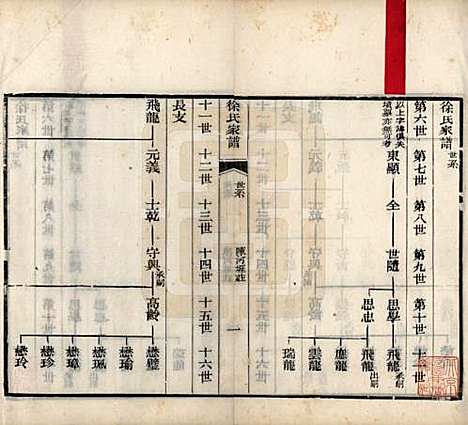 徐氏家譜 世系
第六世 第七世 第八世 第九世 第十世 十一世
以上字諱俱失
墳墓亦無可考
東顯 全 世隨 思學 飛龍 承嗣
思忠 飛龍 出嗣
應龍
雲龍
瑞龍
徐氏家譜 世系 陳河壩莊 一
十一世 十二世 十三世 十四世 十五世 十六世
長支
飛龍 元義 士乾 守興 承嗣 高齡 懋璧
懋瑜
懋珮
懋璋
懋珍
懋玲